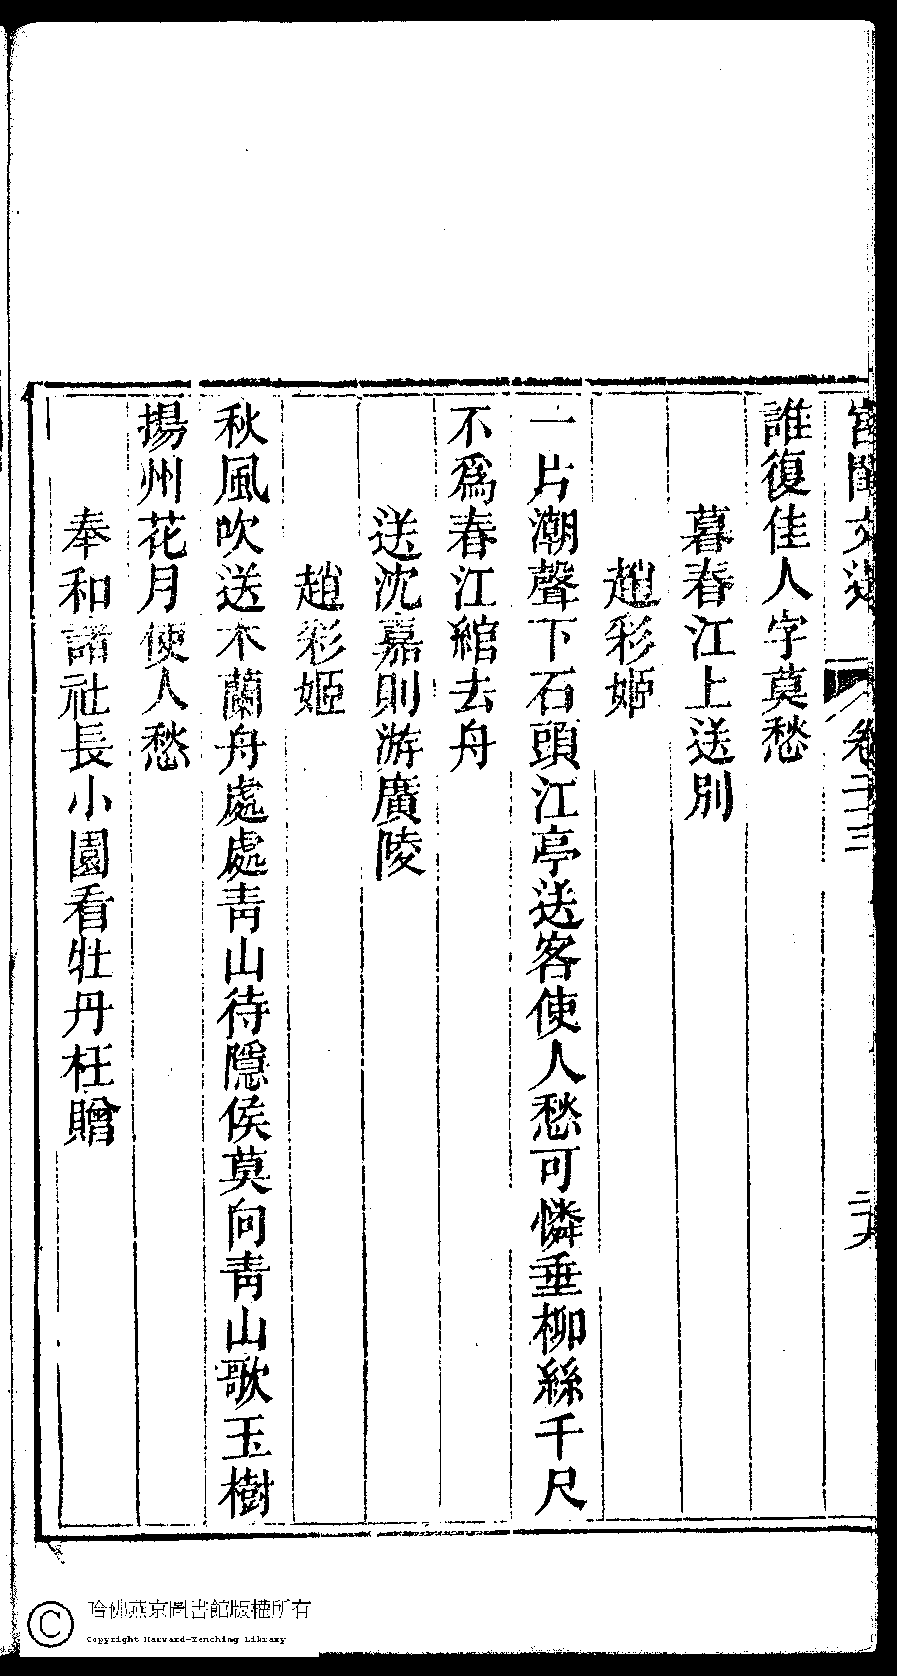 宮閨文選 卷二十三 二九
誰復佳人字莫愁
暮春江上送別
趙彩姬
一片潮聲下石頭江亭送客使人愁可憐垂柳絲千尺
不爲春江綰去舟
送沈嘉則游廣陵
趙彩姬
秋風吹送木蘭舟處處靑山待隱侯莫向靑山歌玉樹
揚州花月使人愁
奉和諸社長小園看牡丹枉贈
哈佛燕京圖書館版權所有
Copyright Harvard-Yenching Library